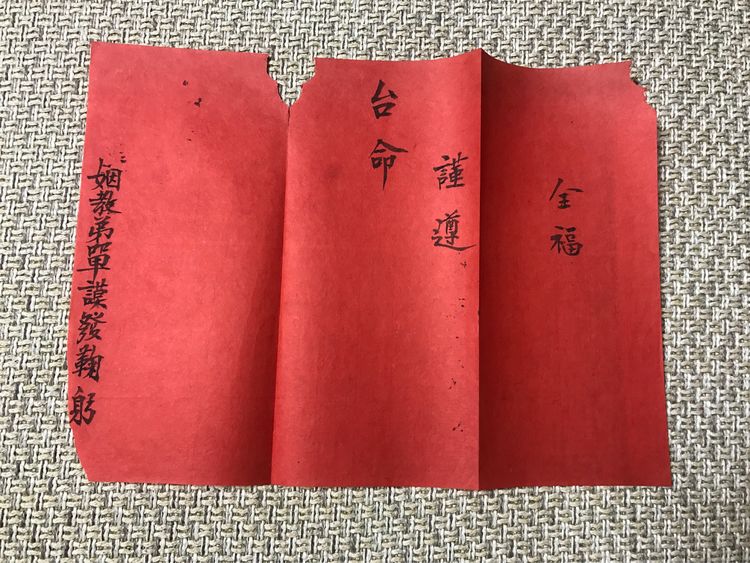 全福
謹遵
台命
姻教弟單謨發鞠躬